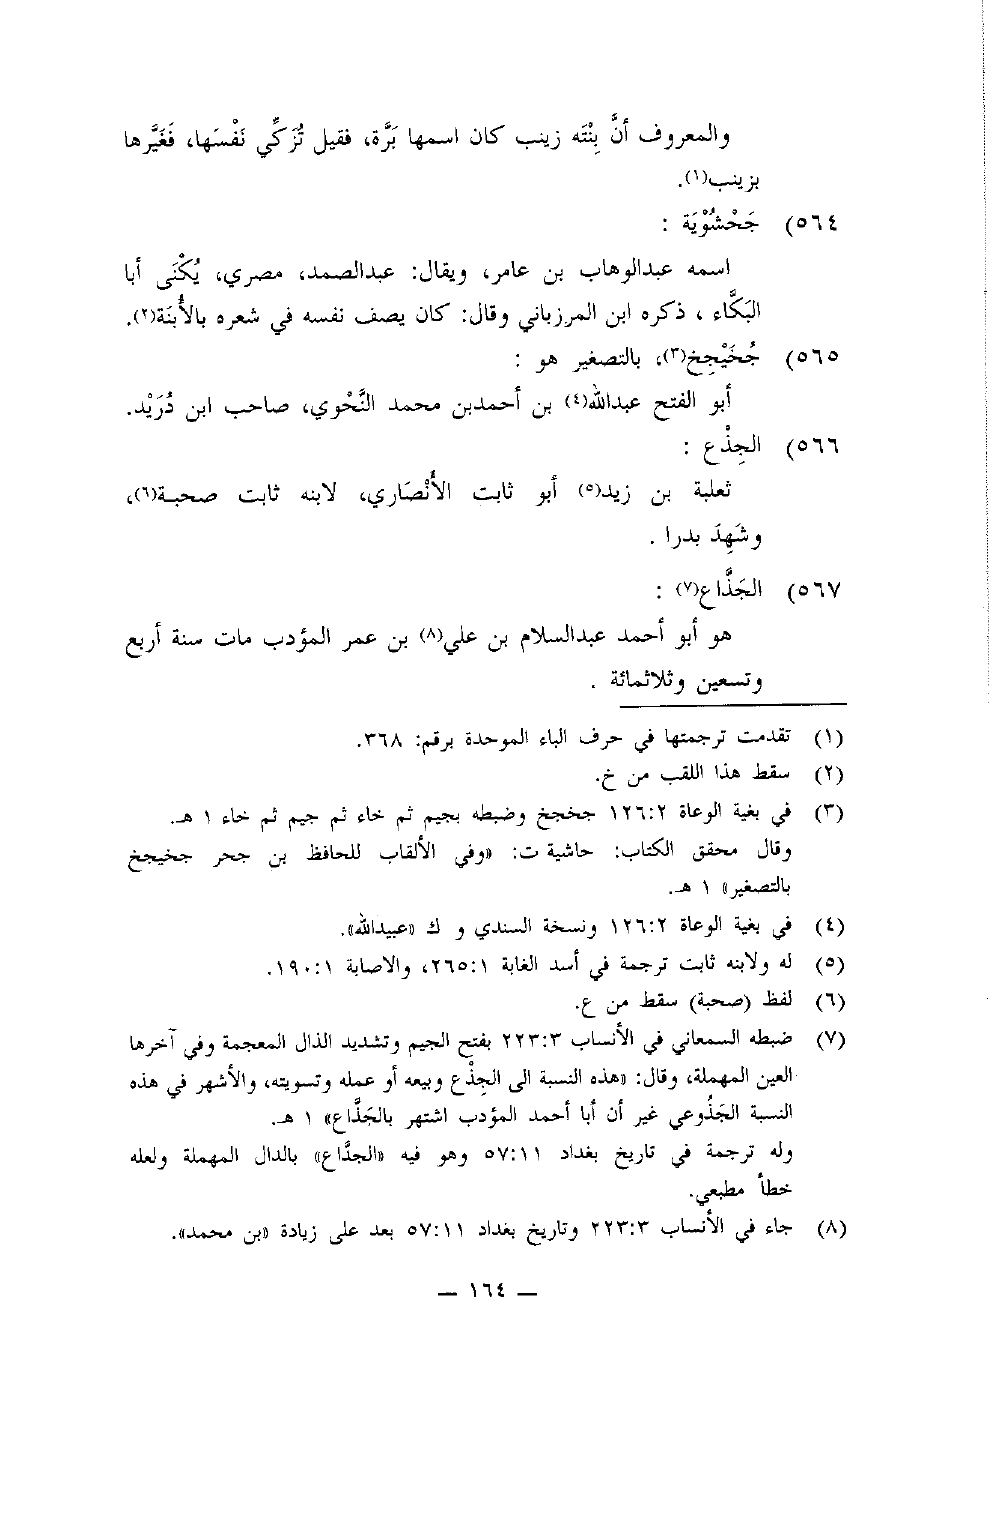 والمعروف أنَّ بِنْتَه زينب كان اسمها بَرَّة، فقيل تُزَكِّي نَفْسَها، فَغَيَّرها
بزينب(١).
٥٦٤) جَحْشُوْيَة :
اسمه عبدالوهاب بن عامر، ويقال: عبدالصمد، مصري، يُكْنَى أبا
البَكَّاء ، ذكره ابن المرزباني وقال: كان يصف نفسه في شعره بالأُبنَة(٢).
٥٦٥) جُخَيْجِخ(٣)، بالتصغير هو :
أبو الفتح عبدالله(٤) بن أحمدبن محمد النَّحْوي، صاحب ابن دُرَيْد.
٥٦٦) الجِذْع :
ثعلبة بن زيد(٥) أبو ثابت الأَنْصَاري، لابنه ثابت صحبة(٦)،
وشَهِدَ بدرا .
٥٦٧) الجَذَّاع(٧) :
هو أبو أحمد عبدالسلام بن علي(٨) بن عمر المؤدب مات سنة أربع
وتسعين وثلاثمائة .
(١) تقدمت ترجمتها في حرف الباء الموحدة برقم: ٣٦٨.
(٢) سقط هذا اللقب من خ.
(٣) في بغية الوعاة ١٢٦:٢ جخجخ وضبطه بجيم ثم خاء ثم جيم ثم خاء ١ هـ.
وقال محقق الكتاب: حاشية ت: «وفي الألقاب للحافظ بن جحر جخيجخ
بالتصغير» ١ هـ.
(٤) في بغية الوعاة ١٢٦:٢ ونسخة السندي و ك «عبيدالله».
(٥) له ولابنه ثابت ترجمة في أسد الغابة ٢٦٥:١، والاصابة ١٩٠:١.
(٦) لفظ (صحبة) سقط من ع.
(٧) ضبطه السمعاني في الأنساب ٢٢٣:٣ بفتح الجيم وتشديد الذال المعجمة وفي آخرها
العين المهملة، وقال: «هذه النسبة الى الجِذْع وبيعه أو عمله وتسويته، والأشهر في هذه
النسبة الجَذُوعي غير أن أبا أحمد المؤدب اشتهر بالجَذَّاع» ١ هـ.
وله ترجمة في تاريخ بغداد ٥٧:١١ وهو فيه «الجدَّاع» بالدال المهملة ولعله
خطأ مطبعي.
(٨) جاء في الأنساب ٢٢٣:٣ وتاريخ بغداد ٥٧:١١ بعد على زيادة «بن محمد».
— ١٦٤ —